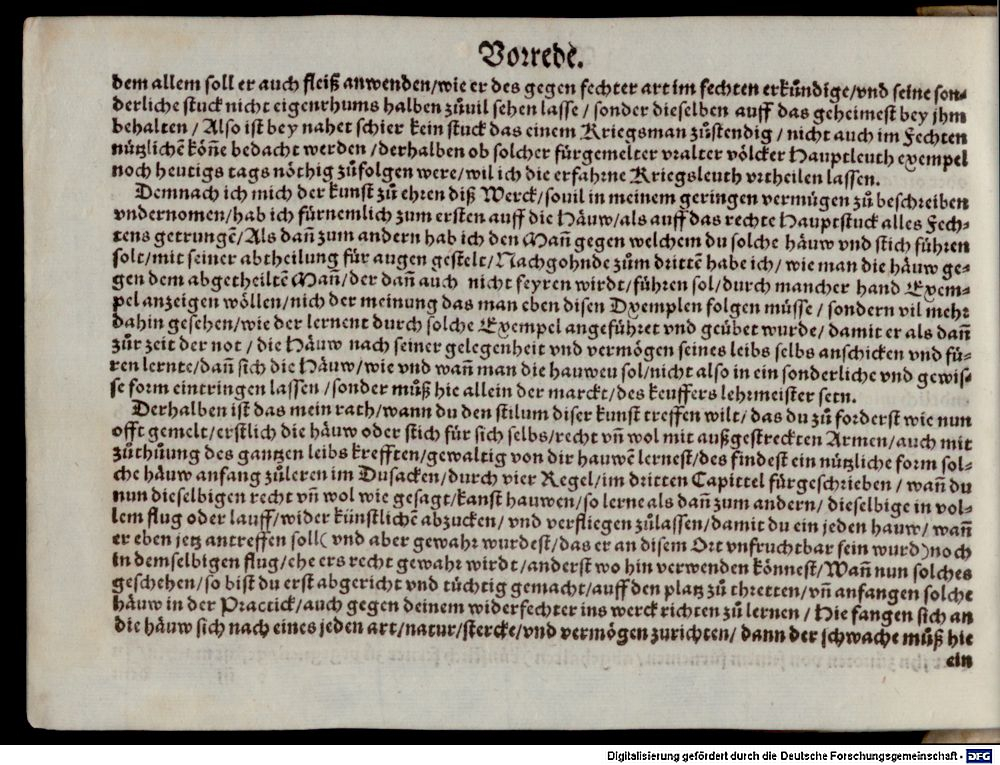 Vorrede.
dem allem soll er auch fleiß anwenden/wie er des gegen fechter art im fechten erkündige/vnd seine son⸗
derliche stuck nicht eigenrhums halben zůuil sehen lasse / sonder dieselben auff das geheimest bey jhm
behalten / Also ist bey nahet schier kein stuck das einem Kriegsman zůstendig / nicht auch im Fechten
nützlichē köñe bedacht werden / derhalben ob solcher fürgemelter vralter völcker Hauptleuth exempel
noch heutigs tags nöthig zůfolgen were/wil ich die erfahrne Kriegsleuth vrtheilen lassen.
Demnach ich mich der kunst zů ehren diß Werck/souil in meinem geringen vermügen zů beschreiben
vndernomen/hab ich fürnemlich zum ersten auff die Häuw/als auff das rechte Hauptstuck alles Fech⸗
tens getrungē/Als dañ zum andern hab ich den Mañ gegen welchem du solche häuw vnd stich führen
solt/mit seiner abtheilung für augen gestelt/Nachgohnde zům drittē habe ich/ wie man die häuw ge⸗
gen dem abgetheiltē Mañ/der dañ auch nicht feyren wirdt/führen sol/durch mancher hand Exem⸗
pel anzeigen wöllen/nich der meinung das man eben disen Dxemplen folgen müsse / sondern vil mehr
dahin gesehen/wie der lernent durch solche Exempel angeführet vnd geübet wurde/ damit er als dañ
zůr zeit der not / die Häuw nach seiner gelegenheit vnd vermögen seines leibs selbs anschicken vnd fü⸗
ren lernte/dañ sich die Häuw/wie vnd wañ man die hauweu sol/nicht also in ein sonderliche vnd gewis⸗
se form eintringen lassen /sonder můß hie allein der marckt/des keuffers lehrmeister setn.
Derhalben ist das mein rath/wann du den stilum diser kunst treffen wilt/ das du zů forderst wie nun
offt gemelt/erstlich die häuw oder stich für sich selbs/recht vñ wol mit außgestreckten Armen/auch mit
zůthůung des gantzen leibs krefften/gewaltig von dir hauwē lernest/des findest ein nützliche form sol⸗
che häuw anfang zůleren im Dusacken/durch vier Regel/im dritten Capittel fürgeschrieben / wañ du
nun dieselbigen recht vñ wol wie gesagt/kanst hauwen/so lerne als dañ zum andern/ dieselbige in vol⸗
lem flug oder lauff/wider künstlichē abzucken/ vnd verfliegen zůlassen/damit du ein jeden hauw/ wañ
er eben jetz antreffen soll( vnd aber gewahr wurdest/das er an disem Ort vnfruchtbar sein wurd)noch
in demselbigen flug/ehe ers recht gewahr wirdt /anderst wo hin verwenden könnest/Wañ nun solches
geschehen/so bist du erst abgericht vnd tüchtig gemacht/auff den platz zů thretten/vñ anfangen solche
häuw in der Practick/auch gegen deinem widerfechter ins werck richten zů lernen / Hie fangen sich an
die häuw sich nach eines jeden art/natur/stercke/vnd vermögen zurichten/ dann der schwache můß hie
ein
Digitalisierung gefördert durch die Deutsche Forschungsgemeinschaft - DFG